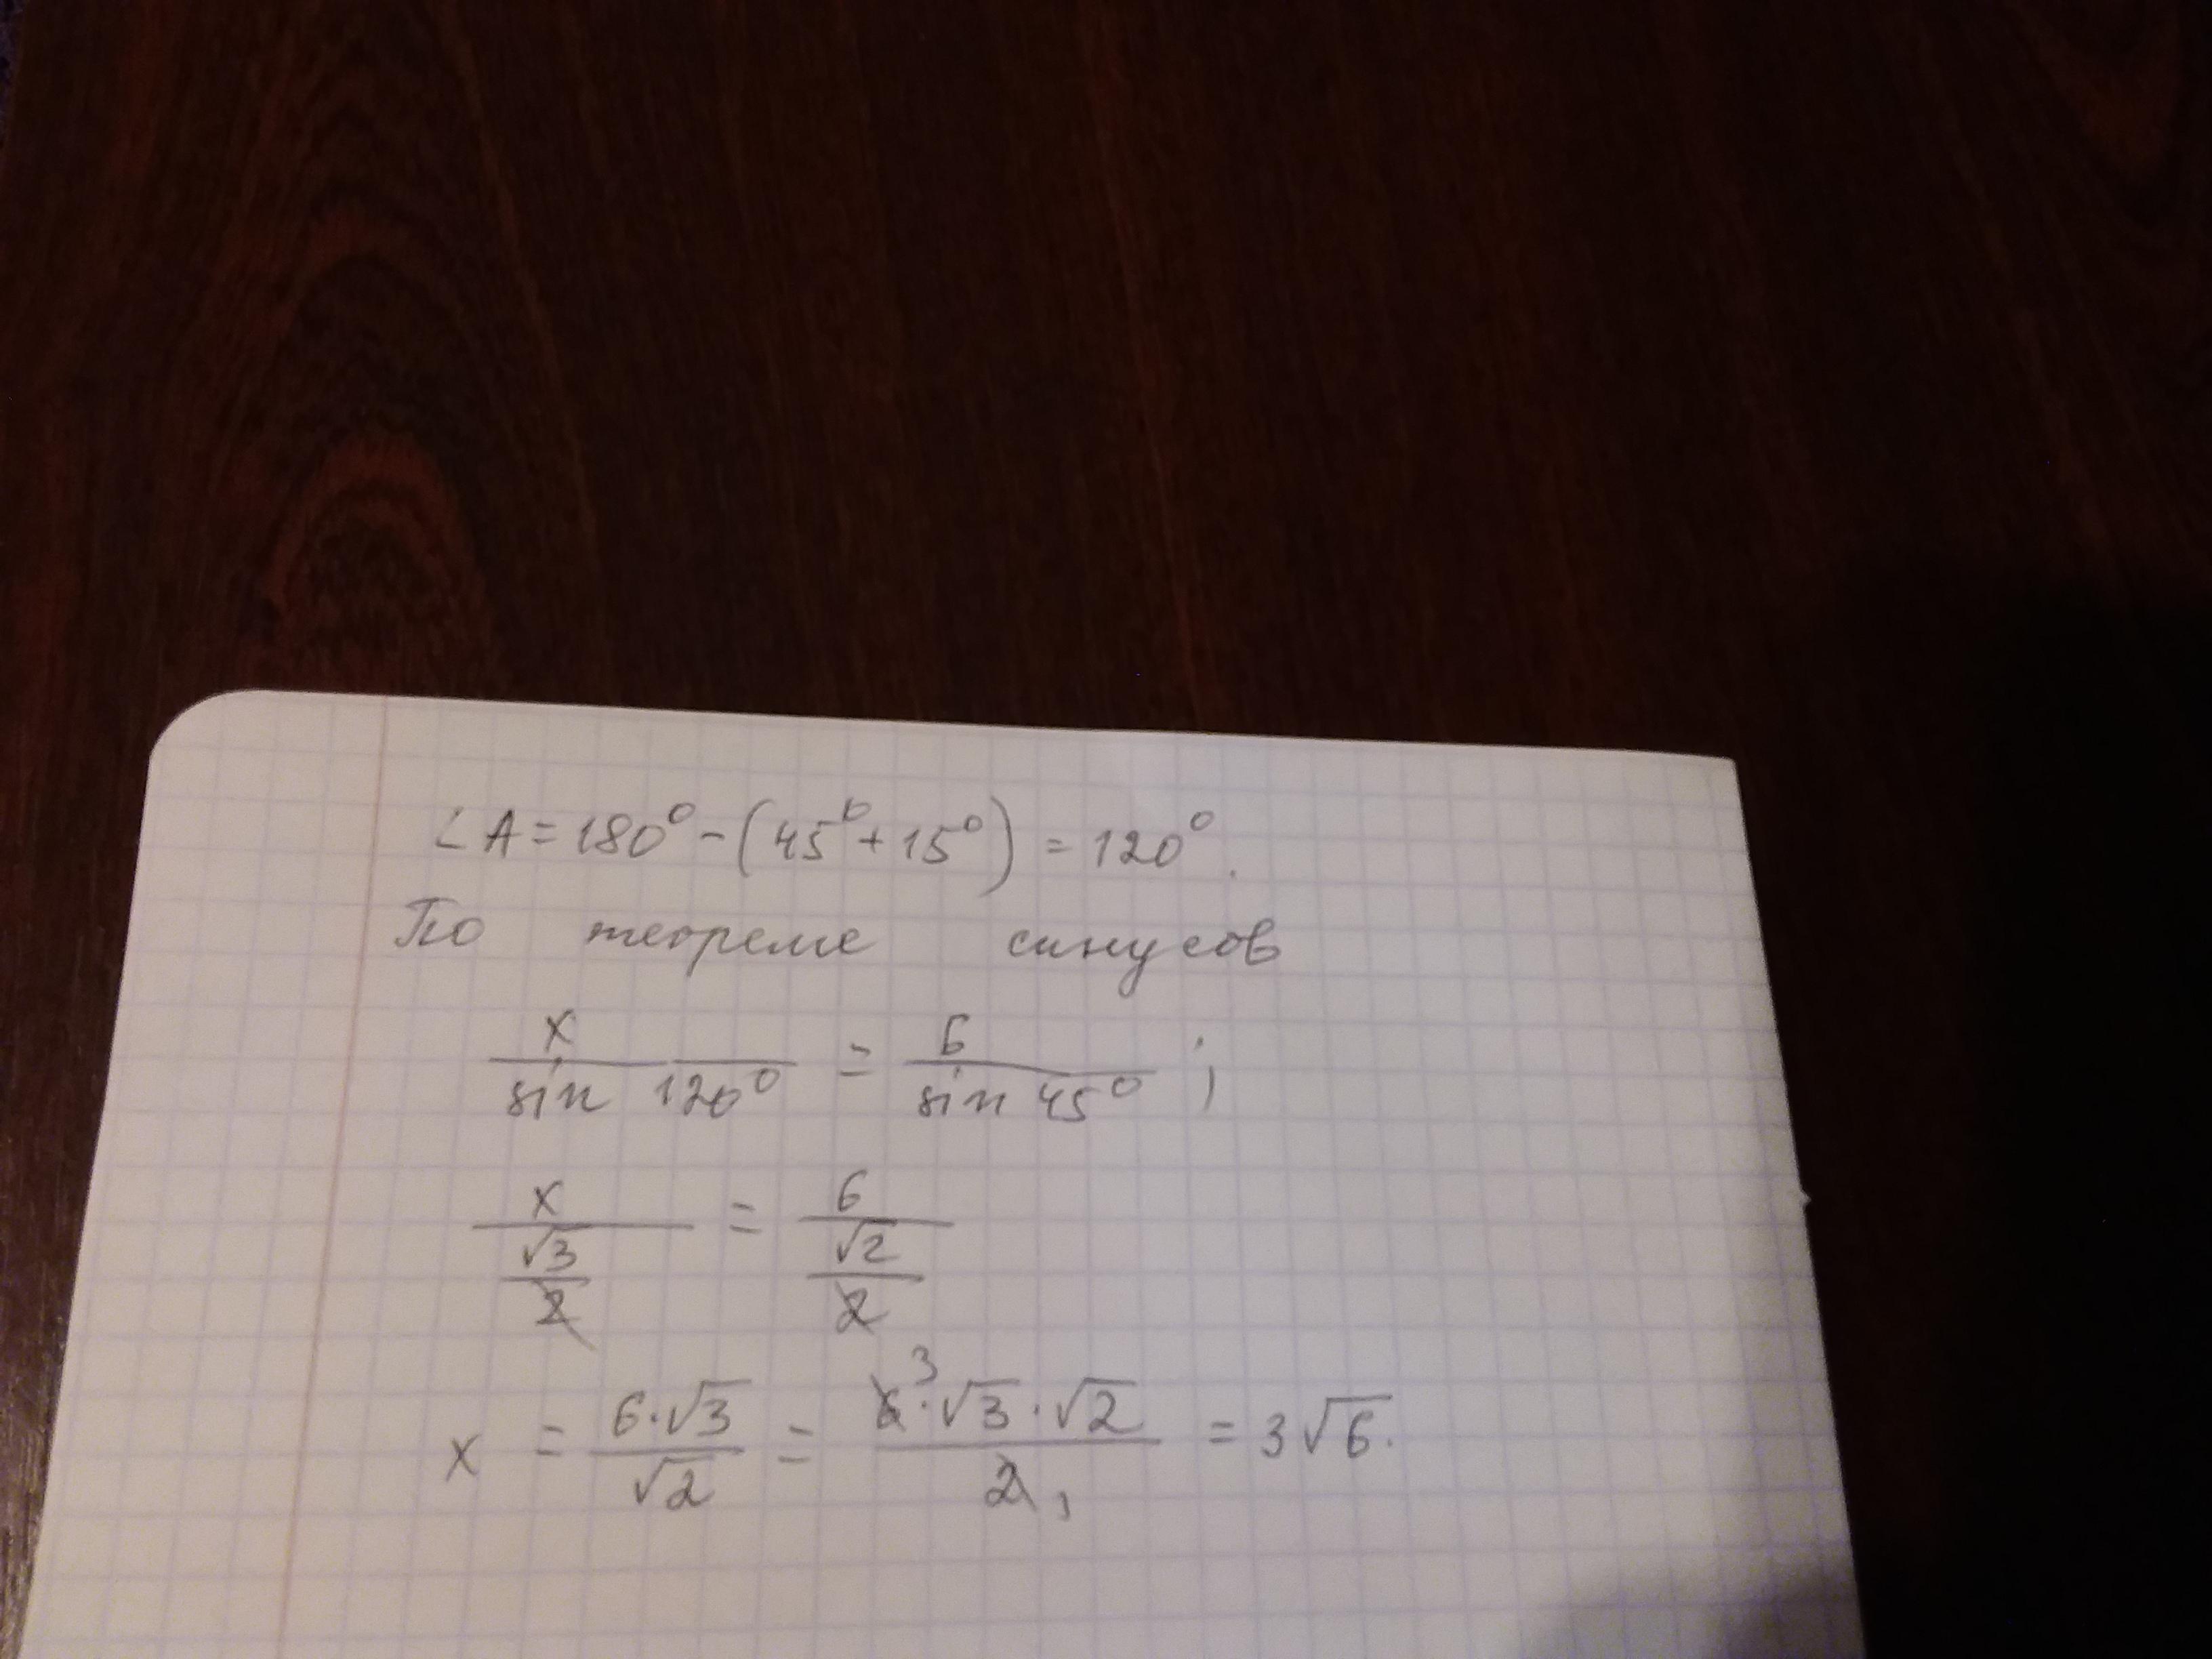 ∠A = 180° - (45° + 15°) = 120°.
По теореме синусов
x / sin 120° = 6 / sin 45° ;
x / (√3/2) = 6 / (√2/2)
x = 6·√3 / √2 = 6³·√3·√2 / 2₁ = 3√6.